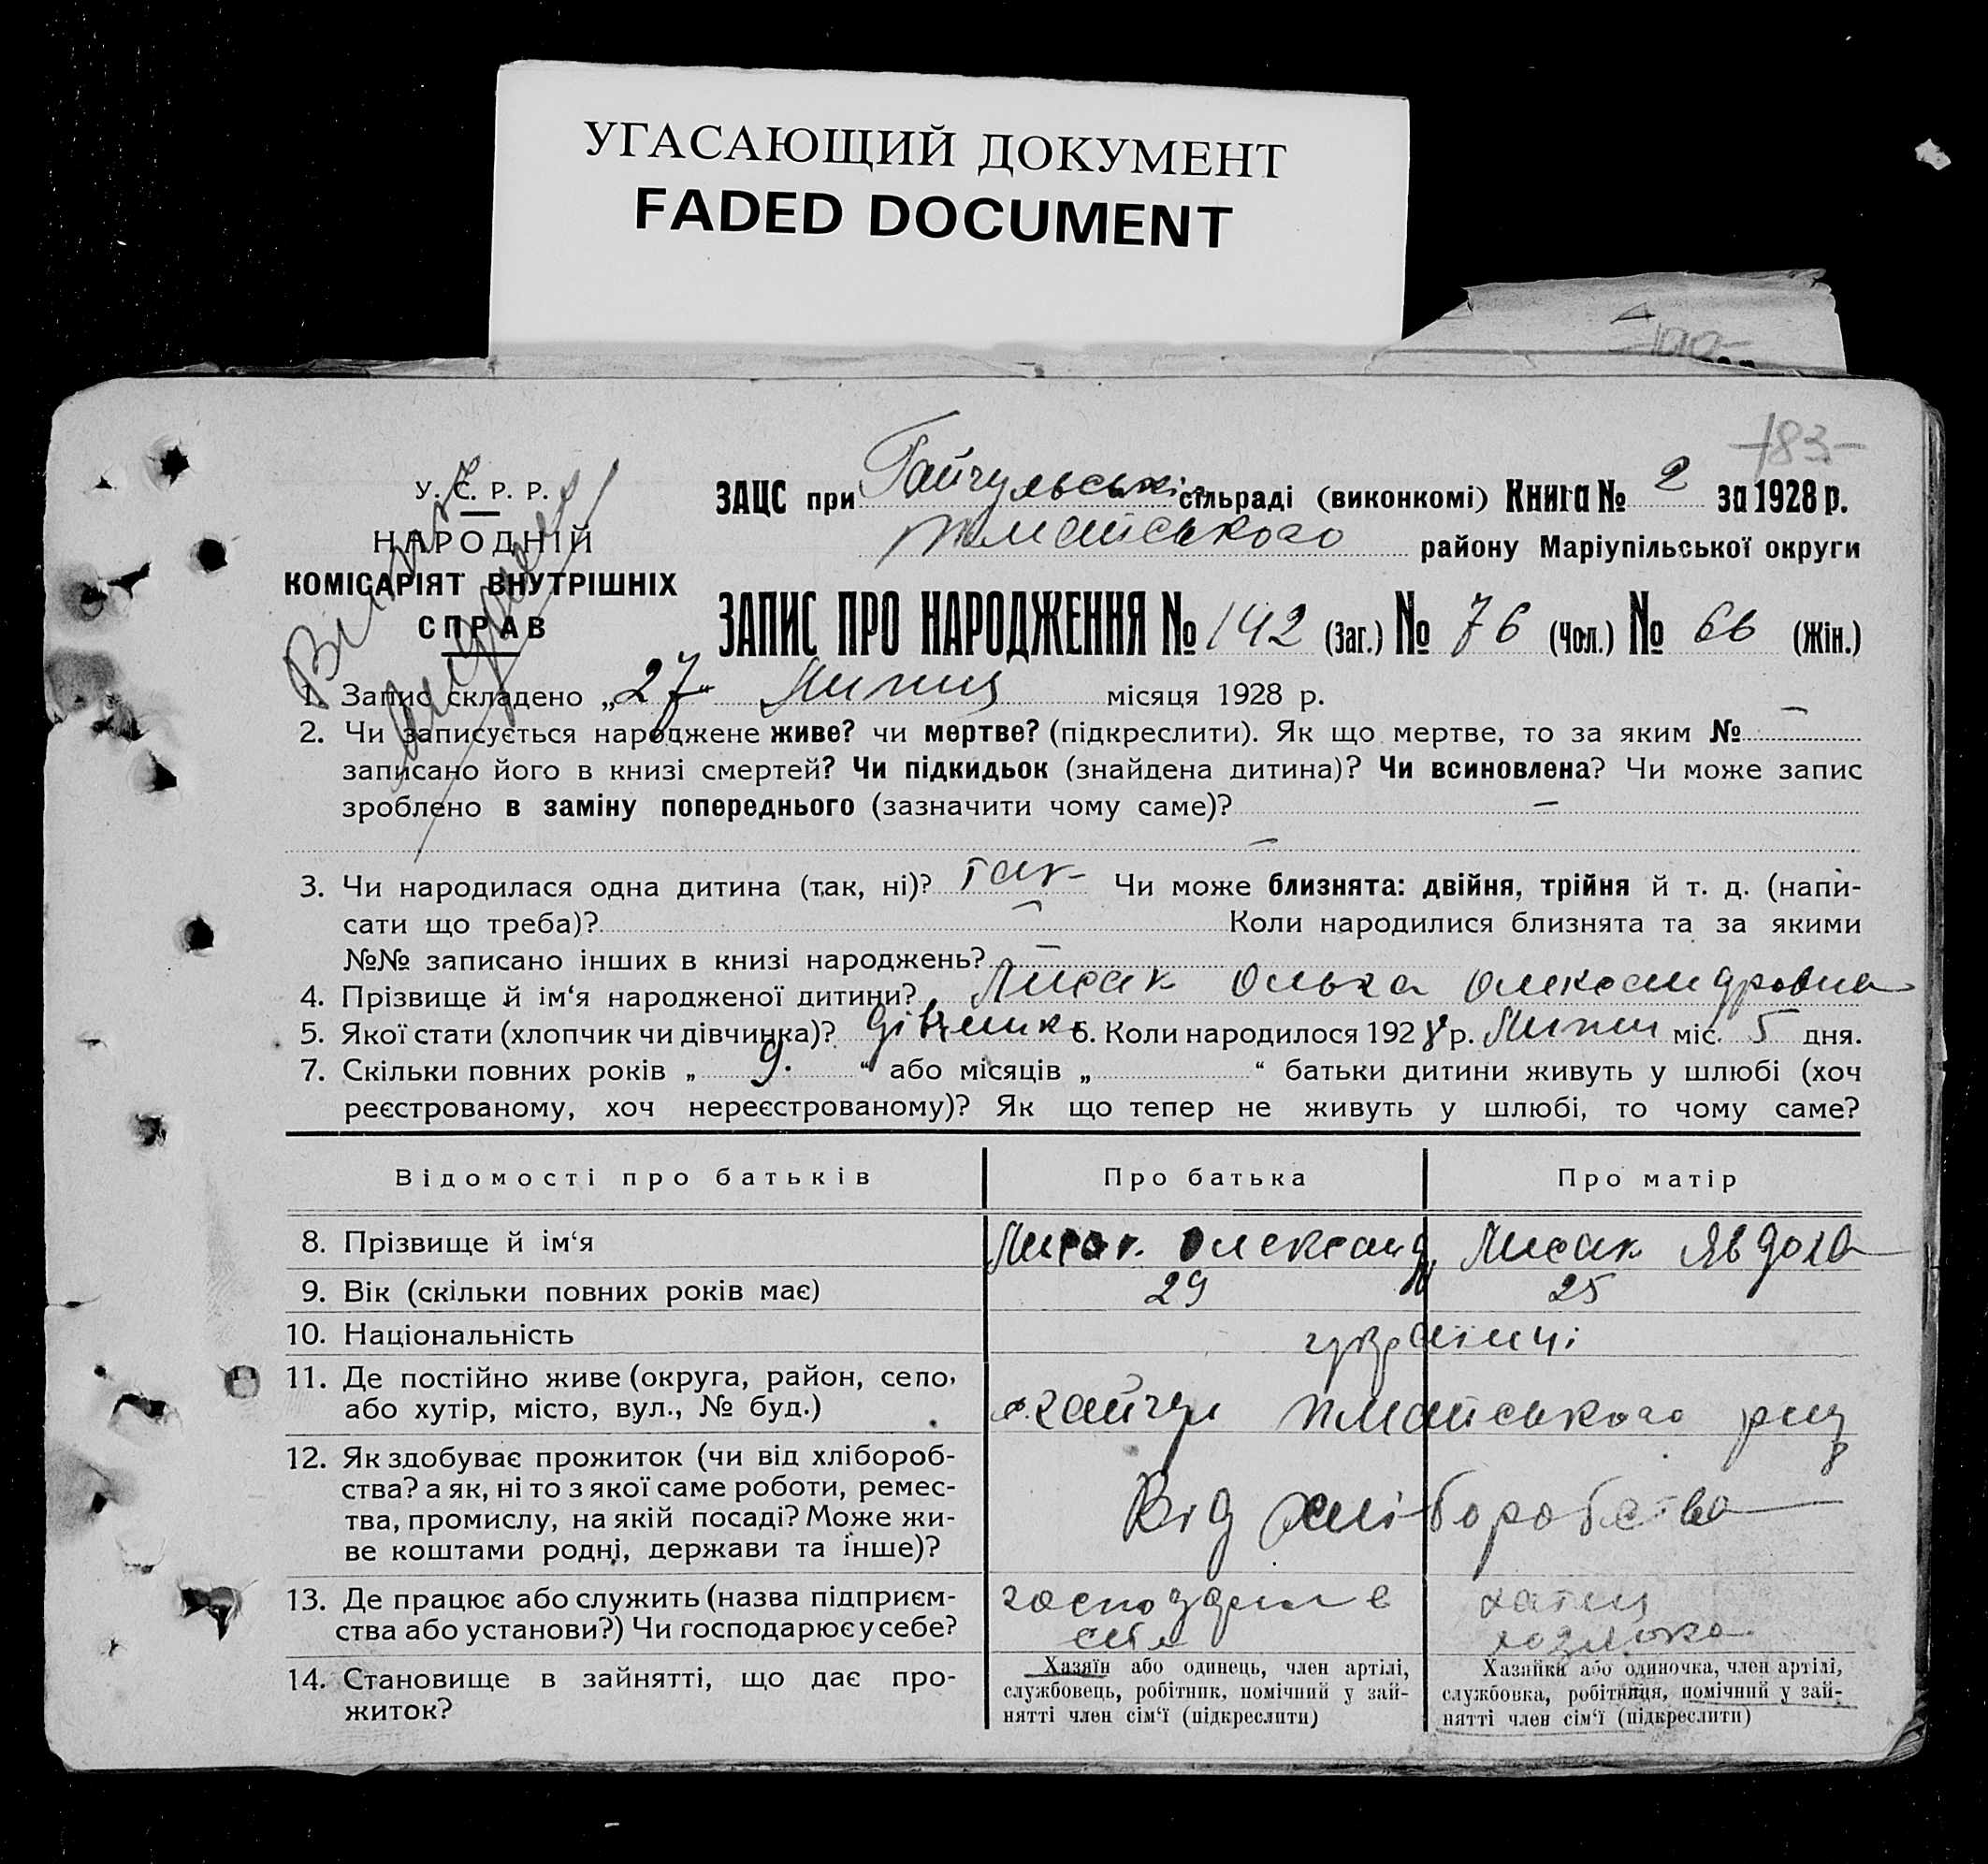 УГАСАЮЩИЙ ДОКУМЕНТ
FADED DOCUMENT
183
У. С. Р. Р.
НАРОДНІЙ
КОМІСАРІЯТ ВНУТРІШНІХ
СПРАВ
ЗАЦС при Гайчульській сільраді (виконкомі) Книга № 2 за 1928 р.
району Маріупільської округи
ЗАПИС ПРО НАРОДЖЕННЯ № 142 (Заг.) № 76 (Чол.) № 66 (Жін.)
1. Запис складено „27“ Липня місяця 1928 р.
2. Чи записується народжене живе? чи мертве? (підкреслити). Як що мертве, то за яким № —
записано його в книзі смертей? Чи підкидьок (знайдена дитина)? Чи всиновлена? Чи може запис
зроблено в заміну попереднього (зазначити чому саме)? —
—
3. Чи народилася одна дитина (так, ні)? так Чи може близнята: двійня, трійня й т. д. (напи-
сати що треба)? — Коли народилися близнята та за якими
№№ записано інших в книзі народжень? —
4. Прізвище й ім‘я народженої дитини? Лисак Ольга Олександровна
5. Якої стати (хлопчик чи дівчинка)? дівчинка 6. Коли народилося 1928 р. Липня міс. 5 дня.
7. Скільки повних років „ 9. “ або місяців „ “ батьки дитини живуть у шлюбі (хоч
реєстрованому, хоч нереєстрованому)? Як що тепер не живуть у шлюбі, то чому саме?
Відомості про батьків Про батька Про матір
8. Прізвище й ім‘я Лисак Олександр Лисак Явдоха
9. Вік (скільки повних років має) 29 25
10. Національність українці
11. Де постійно живе (округа, район, село,
або хутір, місто, вул., № буд.) с. Гайчул
12. Як здобуває прожиток (чи від хлібороб-
ства? а як, ні то з якої саме роботи, ремес-
тва, промислу, на якій посаді? Може жи-
ве коштами родні, держави та інше)?
Від хліборобства
13. Де працює або служить (назва підприєм-
ства або установи?) Чи господарює у себе?
14. Становище в зайнятті, що дає про-
житок?
Хазяїн або одинець, член артілі,
службовець, робітник, помічний у зай-
нятті член сім‘ї (підкреслити)
Хазяйка або одиночка, член артілі,
службовка, робітниця, помічний у зай-
нятті член сім‘ї (підкреслити)